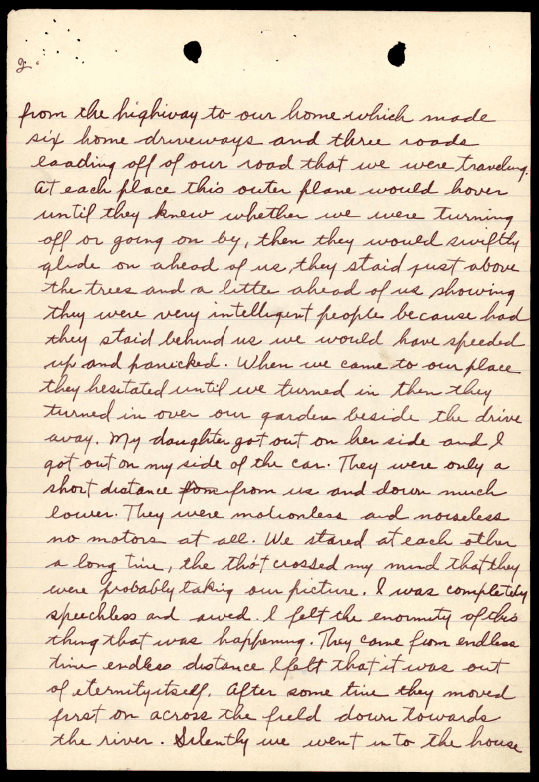 2.
from the highway to our home which made
six home driveways and three roads
leading off of our road that we were traveling.
At each place this outer plane would hover
until they knew whether we were turning
off or going on by, then they would swiftly
glide on ahead of us, they staid just above
the trees and a little ahead of us showing
they were very intelligent people because had
they staid behind us we would have speeded
up and panicked. When we came to our place
they hesitated until we turned in then they
turned in over our garden beside the drive
away. My daughter got out on her side and I
got out on my side of the car. They were only a
short distance from from us and down much
lower. They were motionless and noiseless
no motors at all. We stared at each other
a long time, the tho't crossed my mind that they
were probably taking our picture. I was completely
speechless and awed. I felt the enormity of this
thing that was happening. They came from endless
time endless distance I felt that it was out
of eternity itself. After some time they moved
first on across the field down towards
the river. Silently we went into the house